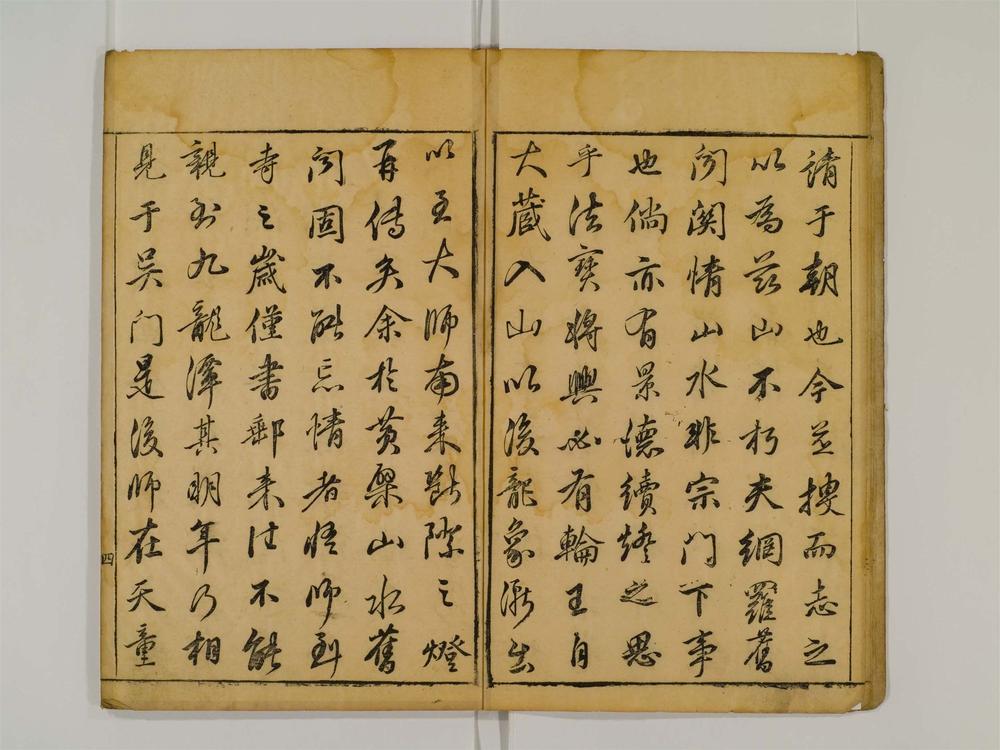 請于朝也今並搜而志之
以為茲山不朽夫網羅舊
聞關情山水非宗門下事
也倘亦有景德續燈之思
乎法寶將興必有輪王自
大藏入山以後龍象漸出
以至大師南來斷際之燈
再傳矣余於黃檗山水舊
聞固不能忘情者惟師到
寺之歲僅書郵來往不能
親到九龍潭其明年乃相
見于吳門是後師在天童
四